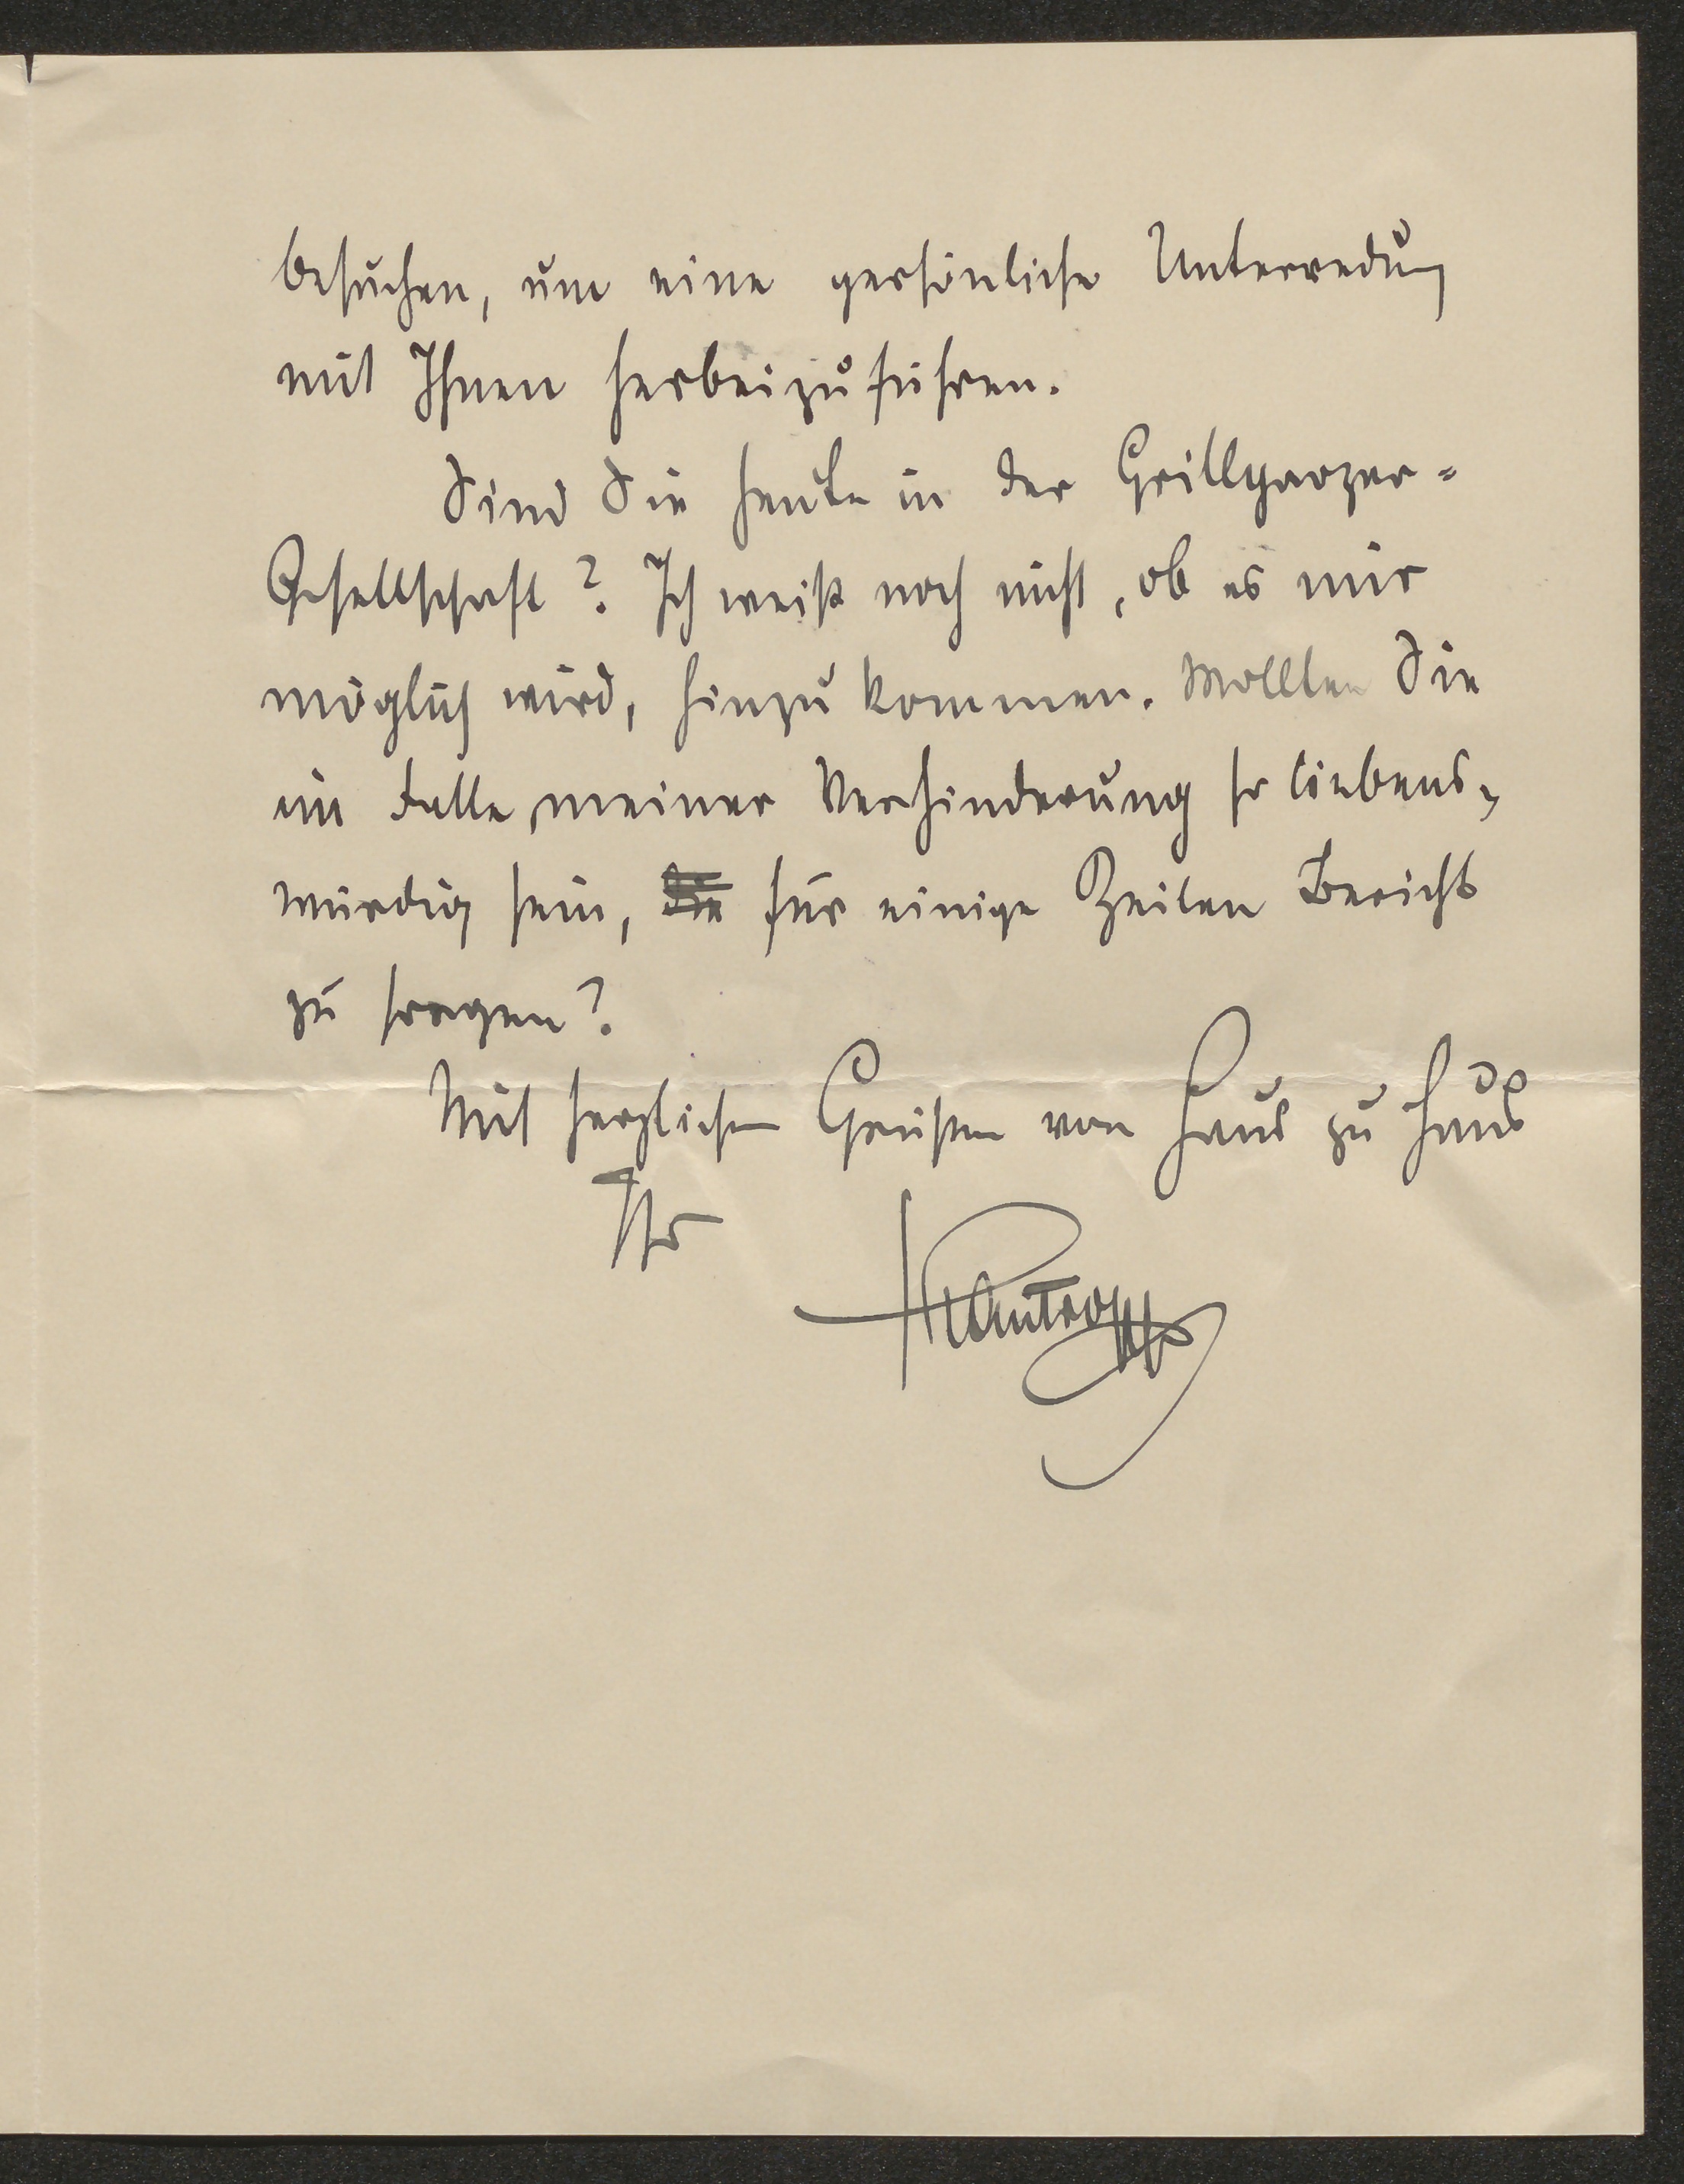 besuchen, um eine persönliche Unterredung
mit Ihnen herbeizuführen.
Sind Sie heute in der Grillparzer-
Gesellschaft? Ich weiß noch nicht, ob es mir
möglich wird, hinzukommen. Wollten Sie
im Falle meiner Verhinderung so liebens-
würdig sein, die für einige Zeilen Bericht
zu sorgen?
Mit herzlichen Grüßen von Haus zu Haus
Ihr